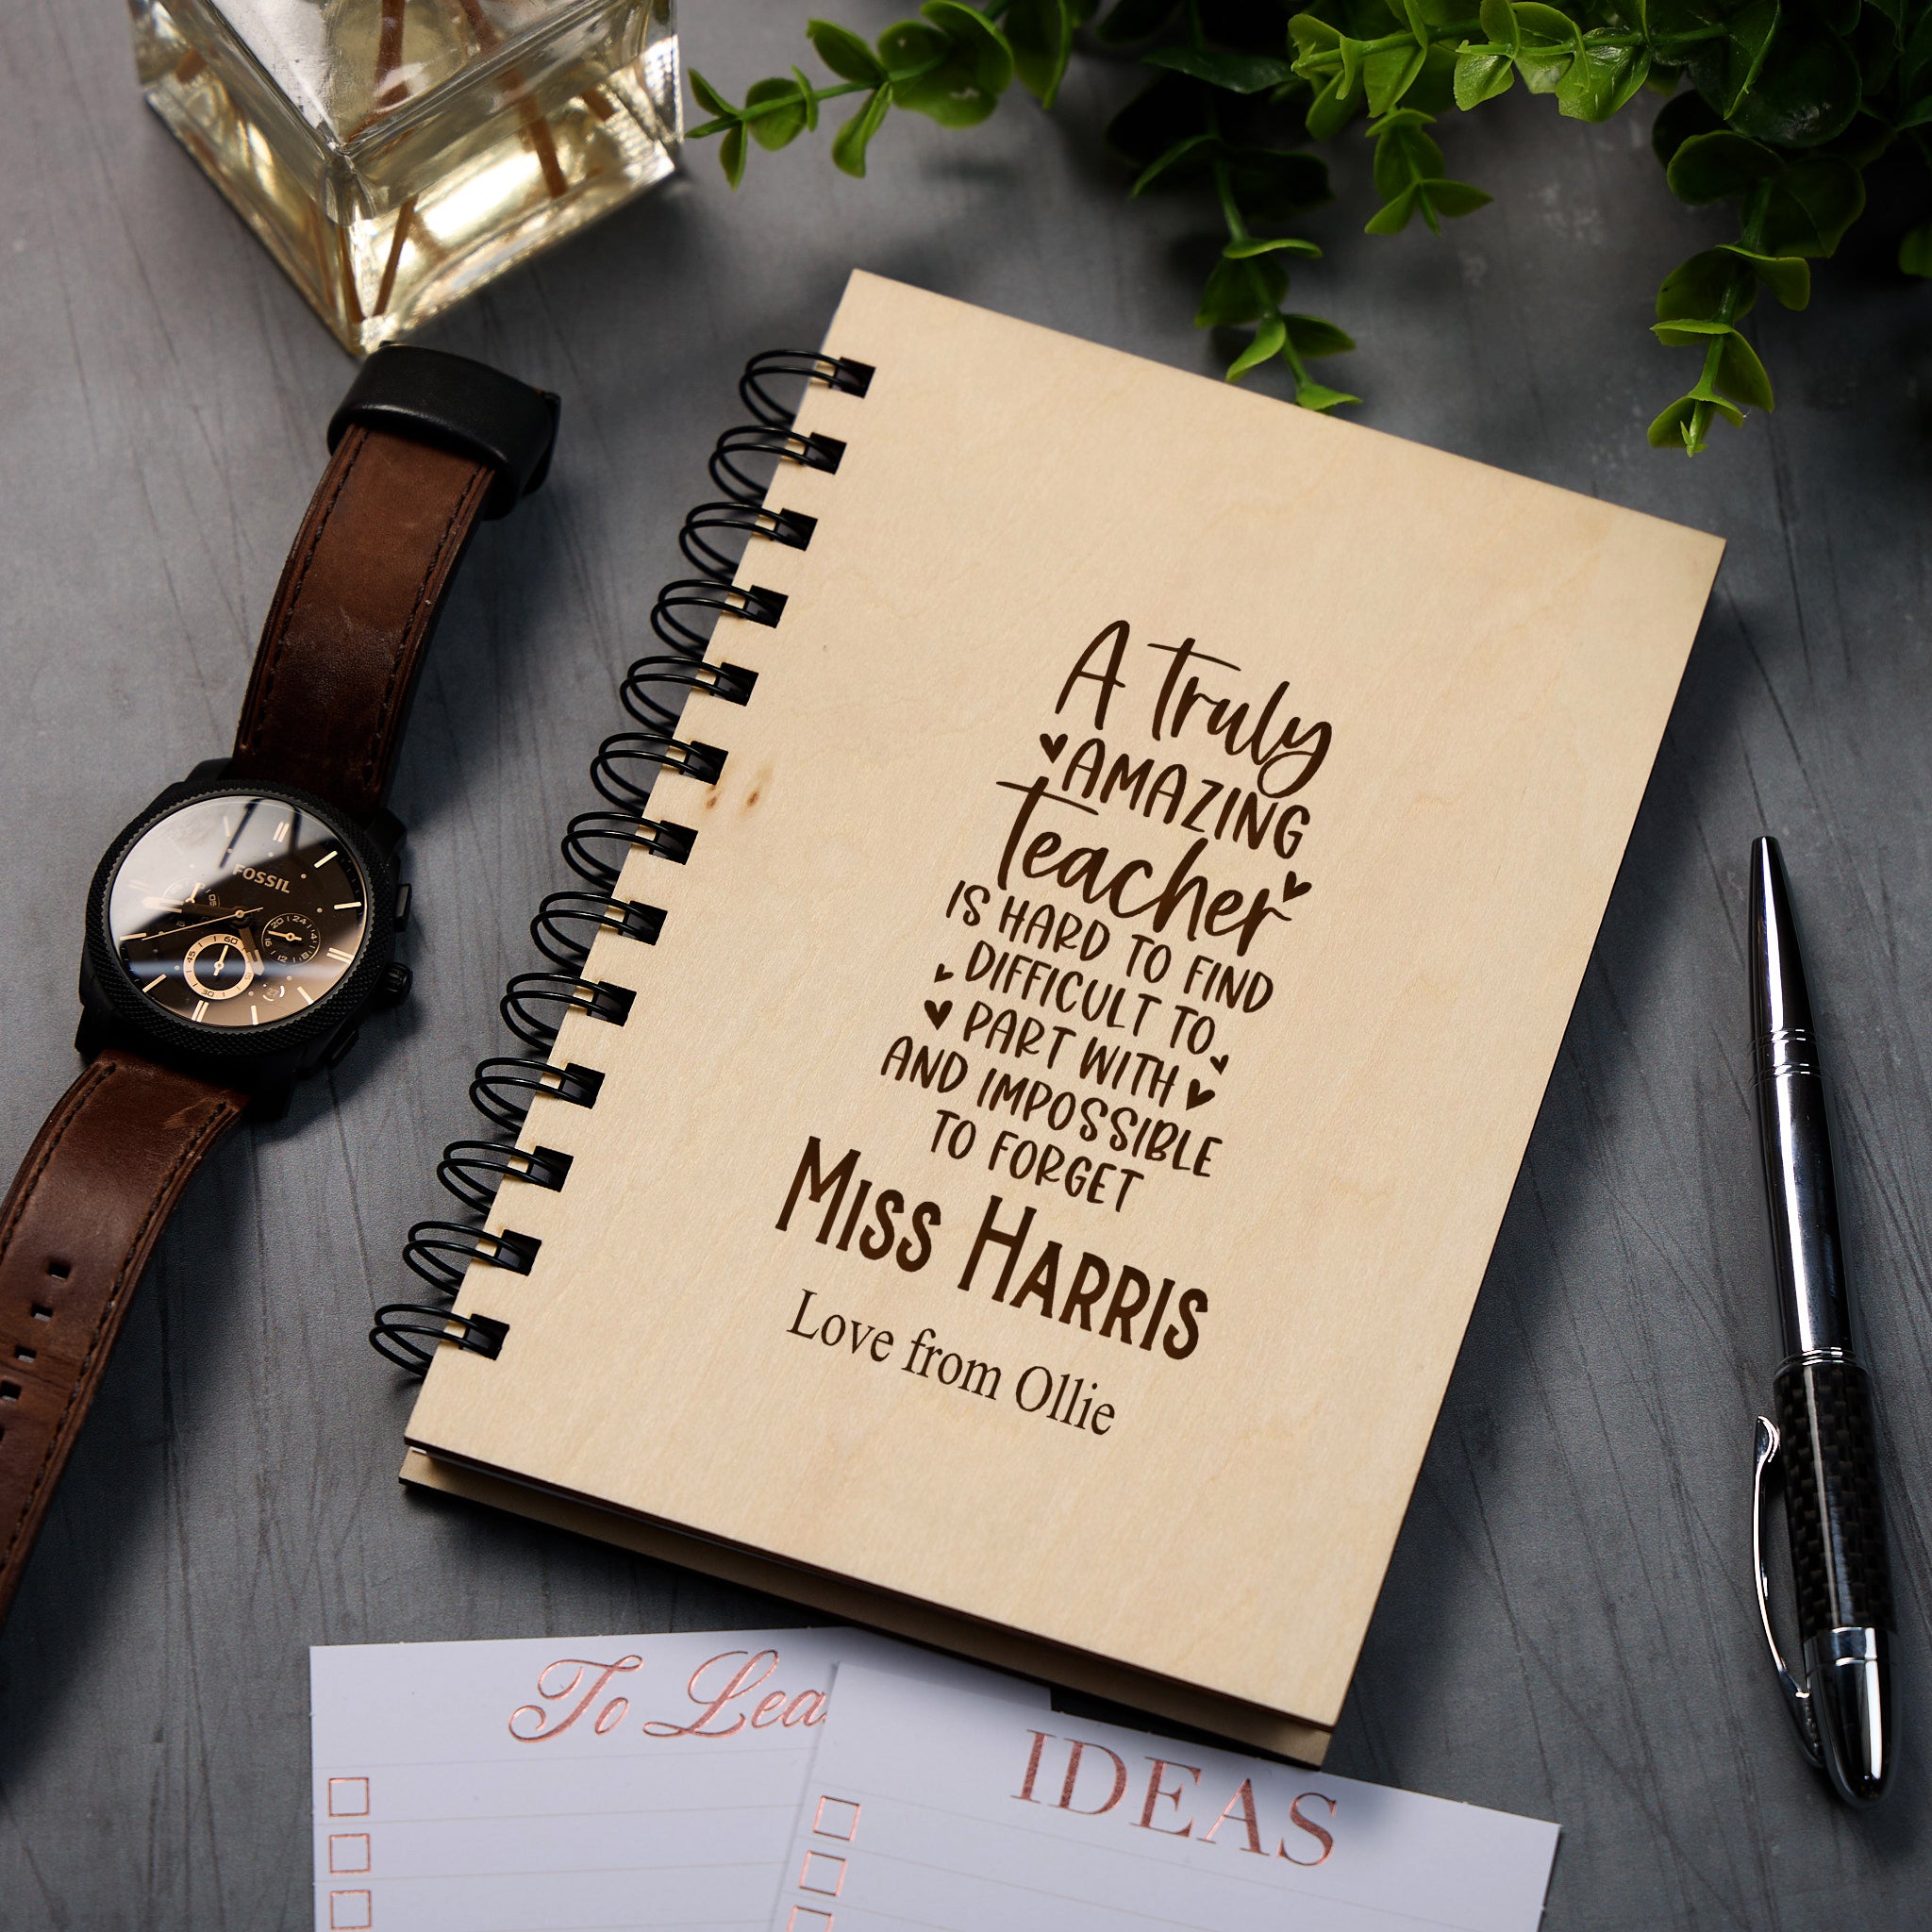 FOSSIL
A Truly
AMAZING
Teacher
IS HARD TO FIND
DIFFICULT TO
PART WITH
AND IMPOSSIBLE
TO FORGET
MISS HARRIS
Love from Ollie
To Lea
IDEAS